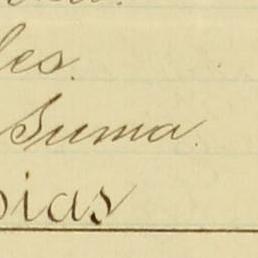 les.
Suma.
pias